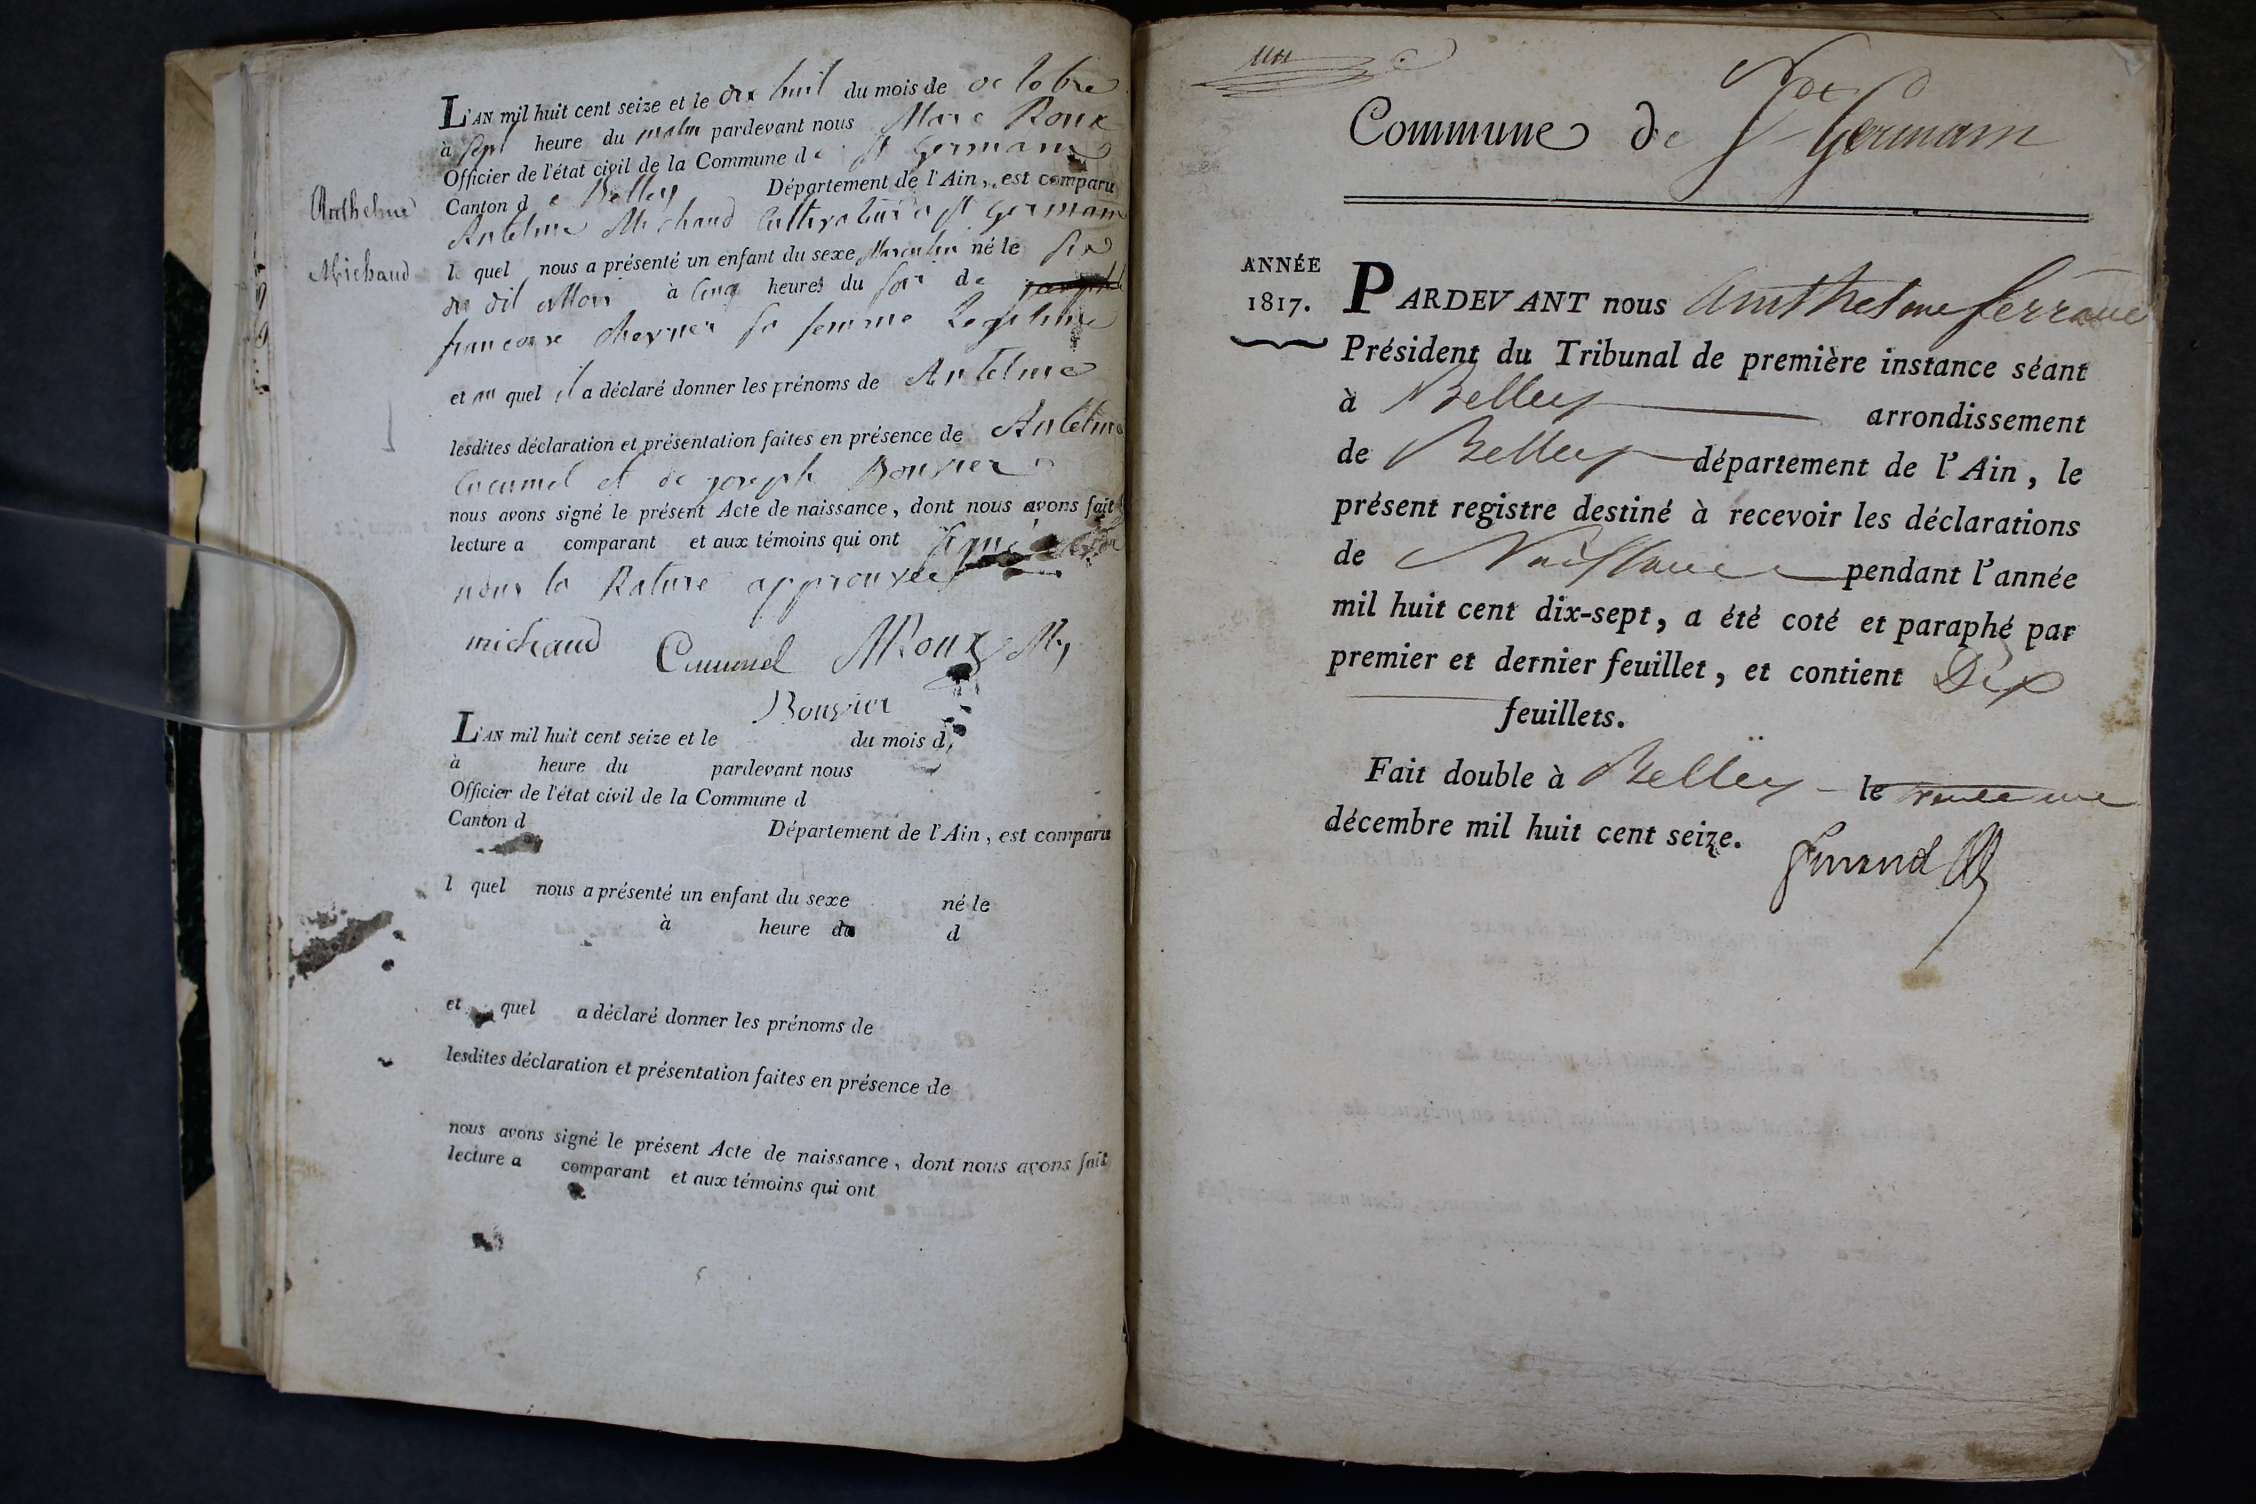 L'AN mil huit cent seize et le dix huit du mois de octobre
à sept heure du matin pardevant nous Marc Roux
Officier de l'état civil de la Commune de St germain
Canton de Belley Département de l'Ain, est comparu
Anthelme
Michaud
Antelme Michaud Cultivateur a st germain
le quel nous a présenté un enfant du sexe Masculin né le six
du dit Mois à cinq heures du soir de
francoise Chevrier sa femme Legitime
et au quel il a déclaré donner les prénoms de Antelme
lesdites déclaration et présentation faites en présence de Antelme
Cucumel et de joseph Bouvier
nous avons signé le présent Acte de naissance, dont nous avons fait
lecture a comparant et aux témoins qui ont signé
nous la Rature approuvée
michaud Cucumel MRoux M
Bouvier
L'AN mil huit cent seize et le du mois d
à heure du pardevant nous
Officier de l'état civil de la Commune d
Canton d Département de l'Ain, est comparu
l quel nous a présenté un enfant du sexe né le
à heure du d
et quel a déclaré donner les prénoms de
lesdites déclaration et présentation faites en présence de
nous avons signé le présent Acte de naissance, dont nous avons fait
lecture a comparant et aux témoins qui ont
Commune de St Germain
ANNÉE
1817.
PARDEVANT nous Anthelme ferrand
Président du Tribunal de première instance séant
à Belley arrondissement
de Belley département de l'Ain, le
présent registre destiné à recevoir les déclarations
de Naissance pendant l'année
mil huit cent dix-sept, a été coté et paraphé par
premier et dernier feuillet, et contient Dix
feuillets.
Fait double à Belley le trente un
décembre mil huit cent seize.
ferrand